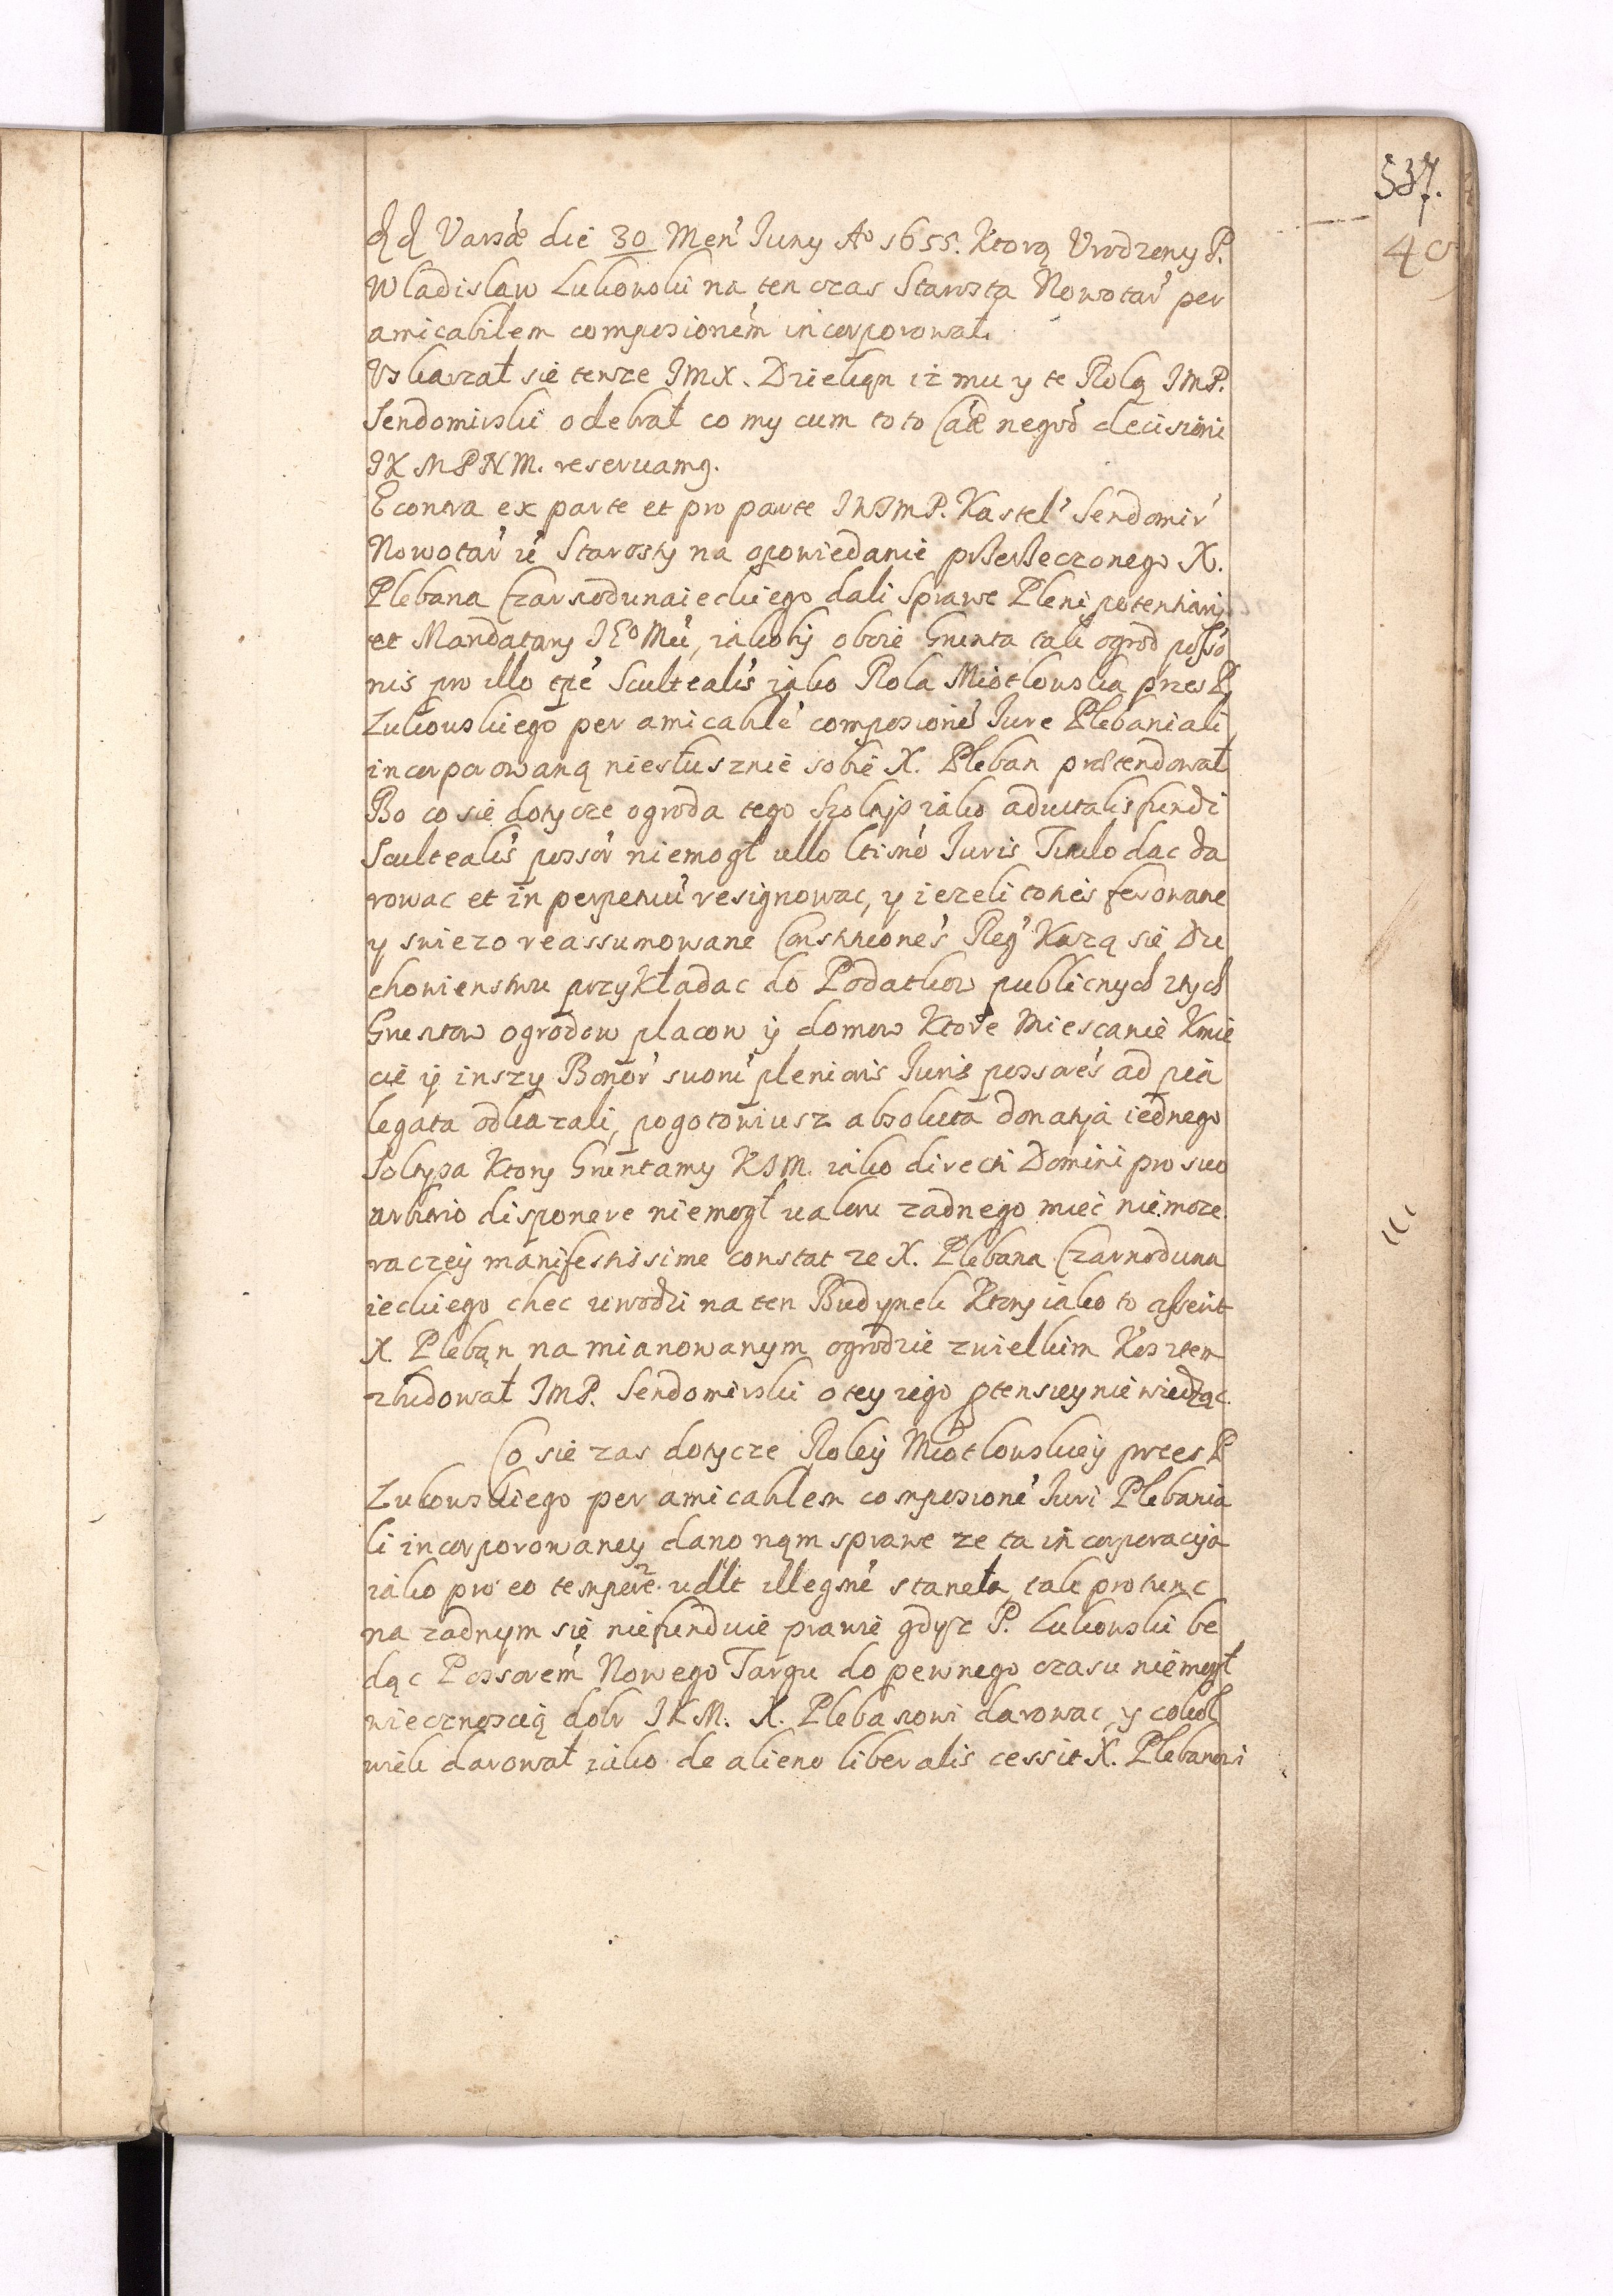 537.
40
dd Varsae die 30 Men' Juny Ao 1655. Ktorą Urodzeny P.
Wladislaw Lukowski na ten czas Starosta Nowotar' per
amicabilem compositionem incorporował.
Uskarzał sie tenze JMX. Dziekąn iz mu y te Rolą JMP.
Sendomirski odebrał co my cum toto negod decisioni
JKMPNM. reservamg.
Econtra ex parte et pro parte JWJMP. Kastel' Sendomir'
Nowotar' Starosty na opowiedanie przerzeczonego X.
Plebana Czarnodunaieckiego dali Sprawe Plenipotentiarij
et Mandatarij JEo Mci, iakoby oboie Grunta tak ogrod posso
nis pro illo tpe Scultealis iako Rola Miotlowska przes P.
Lukowskiego per amicable' compositione' Jure Plebaniali
incorporowaną niesłusznie sobie X. Pleban praetendował
Bo co sie dotycze ogroda tego Szołtys iako advitalis fundi
Scultealis possor niemogł ullo Juris Titulo dac da
rowac et in perpetuu' resignowac, y iezeli toties ferowane
y swiezo reassumowane Constitutiones Reg' Kazą sie Du
chowienstwu przykładac do Podatkow publicnych ztych
Gruntow ogrodow placow y domow Ktore Miescanie Kmie
cie y inszy Bonor' suoru' plenioris Juris possores ad pia
legata odkazali, pogotowiusz absoluta donatia iednego
Soltysa Ktory Gruntamy KJM. iako directi Domini pro suo
arbitrio disponere niemogł valoru zadnego miec niemoze.
raczey manifestissime constat ze X. Plebana Czarnoduna
ieckiego chec uwodzi na ten Budynek Ktory iako to asserit
X. Plebąn na mianowanym ogrodzie zwielkim Kosztem
zbudował JMP. Sendomirski o tey iego ptensiey nie wiedząc.
Co sie zas dotycze Roley Miotlowskiey przes P
Lukowskiego per amicablem compositione' Juri Plebania
li incorporowaney dano nąm sprawe ze ta incorporacyja
iako pro eo tempore illegme staneła tak pro tunc
na zadnym sie niefunduie prawie gdysz P. Lukowski be
dąc Possorem Nowego Targu do pewnego czasu niemogł
wiecznoscią dobr JKM. X. Plebanowi darowac, y cokol
wiek darował iako de alieno liberalis cessit X. Plebanowi